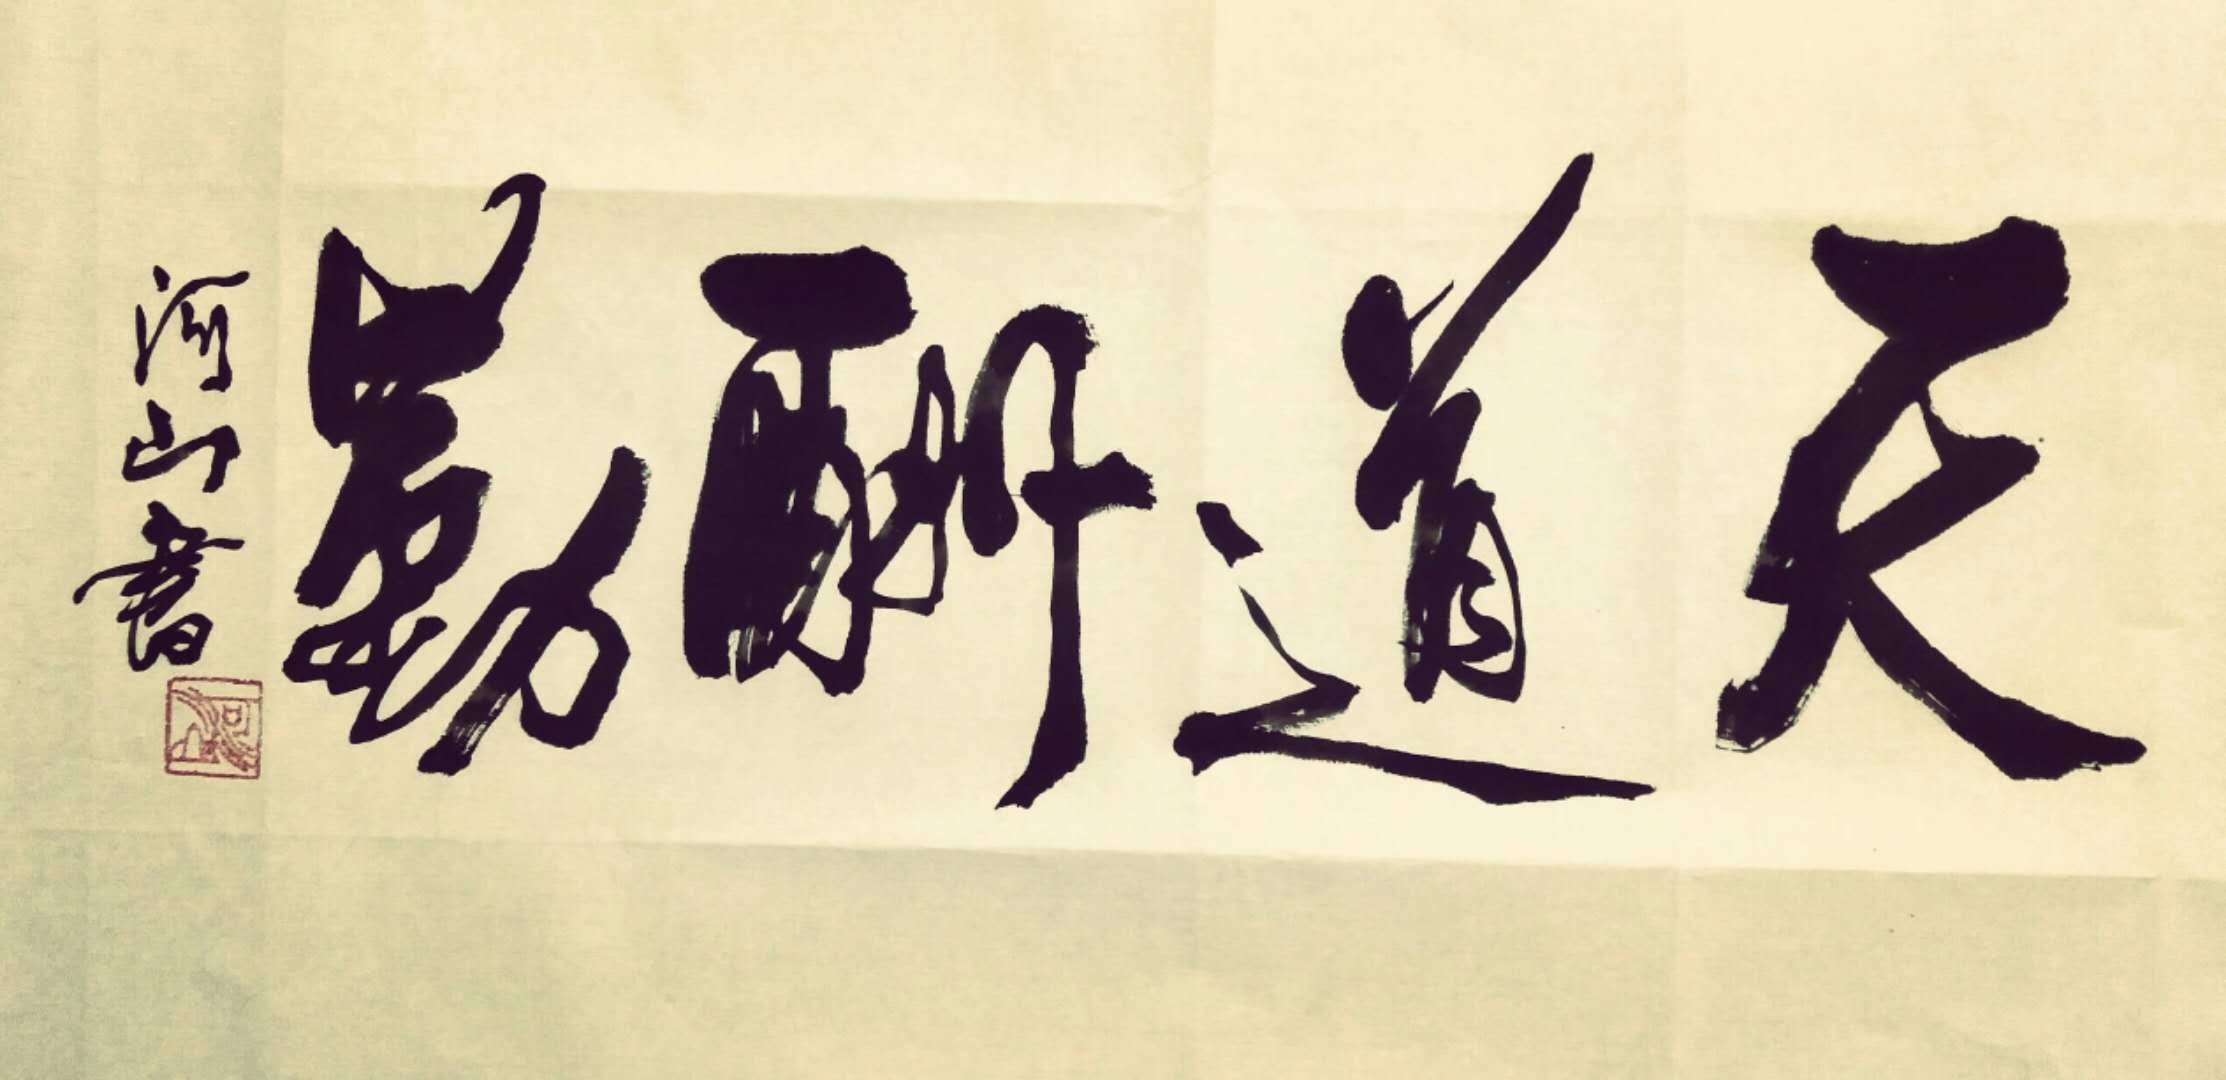 天道酬勤
河山書